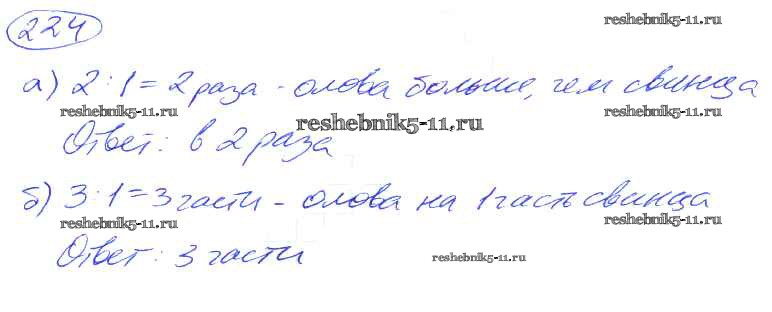 224
reshebnik5-11.ru
а) 2 : 1 = 2 раза - олова больше, чем свинца
reshebnik5-11.ru reshebnik5-11.ru reshebnik5-11.ru
Ответ: в 2 раза
б) 3 : 1 = 3 части - олова на 1 часть свинца
reshebnik5-11.ru reshebnik5-11.ru
Ответ: 3 части
reshebnik5-11.ru